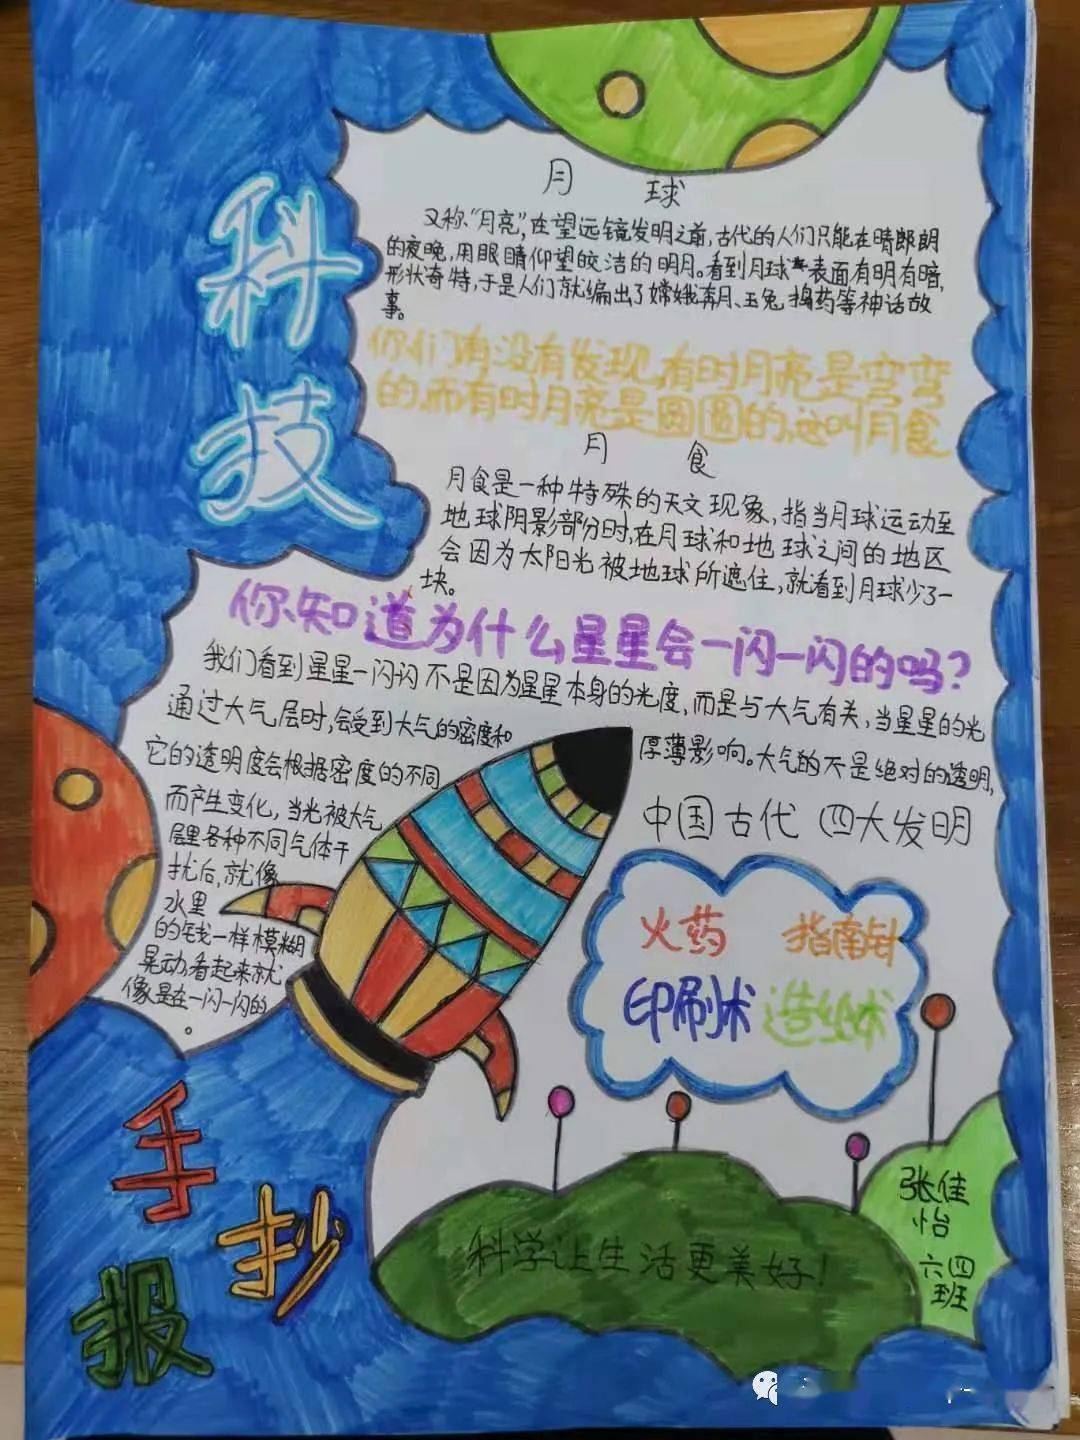 科技
月 球
又称“月亮”,在望远镜发明之前,古代的人们只能在晴郎朗
的夜晚,用眼睛仰望皎洁的明月。看到月球表面有明有暗,
形状奇特,于是人们就编出了嫦娥奔月、玉兔捣药等神话故
事。
你们有没有发现,有时月亮是弯弯
的,而有时月亮是圆圆的,这叫月食
月 食
月食是一种特殊的天文现象,指当月球运动至
地球阴影部分时,在月球和地球之间的地区
会因为太阳光被地球所遮住,就看到月球少了一
块。
你知道为什么星星会一闪一闪的吗?
我们看到星星一闪闪不是因为星星本身的光度,而是与大气有关,当星星的光
通过大气层时,会受到大气的密度和
厚薄影响。大气的不是绝对的透明,
它的透明度会根据密度的不同
而产生变化,当光被大气
层里各种不同气体干
扰后,就像
水里
的钱一样模糊
晃动,看起来就
像是在一闪一闪的
。
中国古代 四大发明
火药 指南针
印刷术 造纸术
手
抄
报
科学让生活更美好!
张佳
怡
六四
班